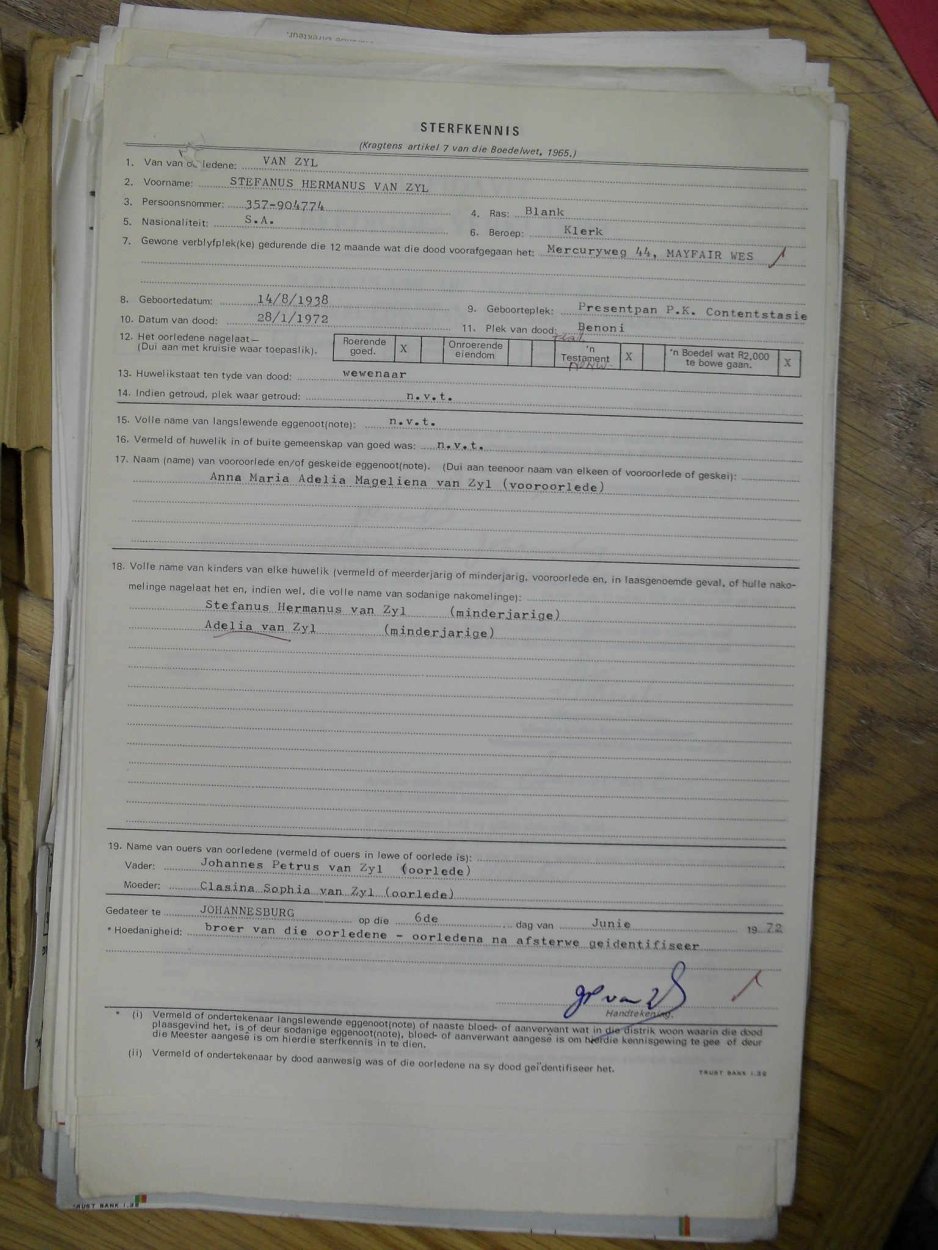 STERFKENNIS
(Kragtens artikel 7 van die Boedelwet, 1965.)
1. Van van oorledene: VAN ZYL
2. Voorname: STEFANUS HERMANUS VAN ZYL
3. Persoonsnommer: 357-904774
4. Ras: Blank
5. Nasionaliteit: S.A.
6. Beroep: Klerk
7. Gewone verblyfplek(ke) gedurende die 12 maande wat die dood voorafgegaan het: Mercuryweg 44, MAYFAIR WES
8. Geboortedatum: 14/8/1938
9. Geboorteplek: Presentpan P.K. Contentstasie
10. Datum van dood: 28/1/1972
11. Plek van dood: Benoni
12. Het oorledene nagelaat—
(Dui aan met kruisie waar toepaslik).
Roerende goed. X
Onroerende eiendom
'n Testament X
'n Boedel wat R2,000 te bowe gaan. X
13. Huwelikstaat ten tyde van dood: wewenaar
14. Indien getroud, plek waar getroud: n.v.t.
15. Volle name van langslewende eggenoot(note): n.v.t.
16. Vermeld of huwelik in of buite gemeenskap van goed was: n.v.t.
17. Naam (name) van vooroorlede en/of geskeide eggenoot(note). (Dui aan teenoor naam van elkeen of vooroorlede of geskei):
Anna Maria Adelia Mageliena van Zyl (vooroorlede)
18. Volle name van kinders van elke huwelik (vermeld of meerderjarig of minderjarig, vooroorlede en, in laasgenoemde geval, of hulle nako-
melinge nagelaat het en, indien wel, die volle name van sodanige nakomelinge):
Stefanus Hermanus van Zyl (minderjarige)
Adelia van Zyl (minderjarige)
19. Name van ouers van oorledene (vermeld of ouers in lewe of oorlede is):
Vader: Johannes Petrus van Zyl (oorlede)
Moeder: Clasina Sophia van Zyl (oorlede)
Gedateer te JOHANNESBURG op die 6de dag van Junie 1972
* Hoedanigheid: broer van die oorledene - oorledena na afsterwe geidentifiseer
Handtekening.
* (i) Vermeld of ondertekenaar langslewende eggenoot(note) of naaste bloed- of aanverwant wat in die distrik woon waarin die dood
plaasgevind het, is of deur sodanige eggenoot(note), bloed- of aanverwant aangesê is om hierdie kennisgewing te gee of deur
die Meester aangesê is om hierdie sterfkennis in te dien.
(ii) Vermeld of ondertekenaar by dood aanwesig was of die oorledene na sy dood geïdentifiseer het.
TRUST BANK 1.36
TRUST BANK 1.36